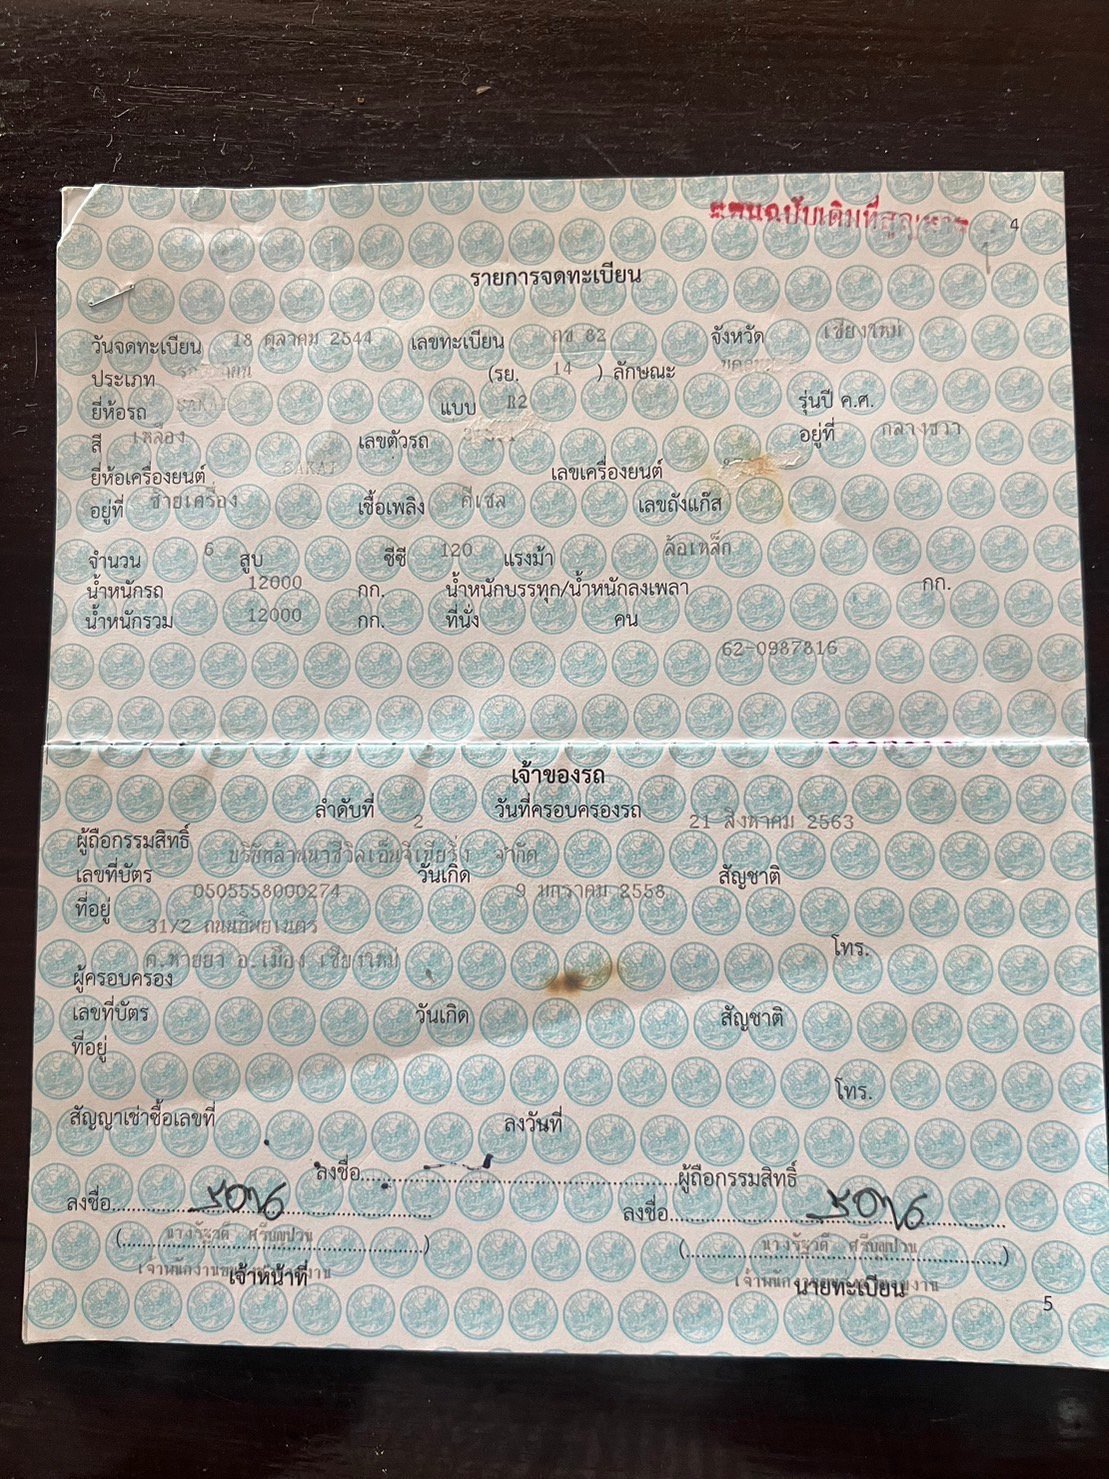 แทนฉบับเดิมที่สูญหาย
4
รายการจดทะเบียน
วันจดทะเบียน 18 ตุลาคม 2544 เลขทะเบียน 82 จังหวัด เชียงใหม่
ประเภท (รย. 14 ) ลักษณะ
ยี่ห้อรถ SAKAI แบบ R2 รุ่นปี ค.ศ.
สี เหลือง เลขตัวรถ อยู่ที่ กลางขวา
ยี่ห้อเครื่องยนต์ SAKAI เลขเครื่องยนต์
อยู่ที่ ซ้ายเครื่อง เชื้อเพลิง ดีเซล เลขถังแก๊ส
จำนวน 6 สูบ ซีซี 120 แรงม้า ล้อเหล็ก
น้ำหนักรถ 12000 กก. น้ำหนักบรรทุก/น้ำหนักลงเพลา กก.
น้ำหนักรวม 12000 กก. ที่นั่ง คน
62-0987816
เจ้าของรถ
ลำดับที่ 2 วันที่ครอบครองรถ 21 สิงหาคม 2563
ผู้ถือกรรมสิทธิ์ บริษัทล้านนาซีวิลเอ็นจิเนียริ่ง จำกัด
เลขที่บัตร 0505558000274 วันเกิด 9 มกราคม 2558 สัญชาติ
ที่อยู่ 31/2 ถนนทิพยเนตร
ต.หายยา อ.เมือง เชียงใหม่ โทร.
ผู้ครอบครอง
เลขที่บัตร วันเกิด สัญชาติ
ที่อยู่
โทร.
สัญญาเช่าซื้อเลขที่ ลงวันที่
ลงชื่อ ผู้ถือกรรมสิทธิ์
ลงชื่อ ลงชื่อ
เจ้าหน้าที่ นายทะเบียน
5